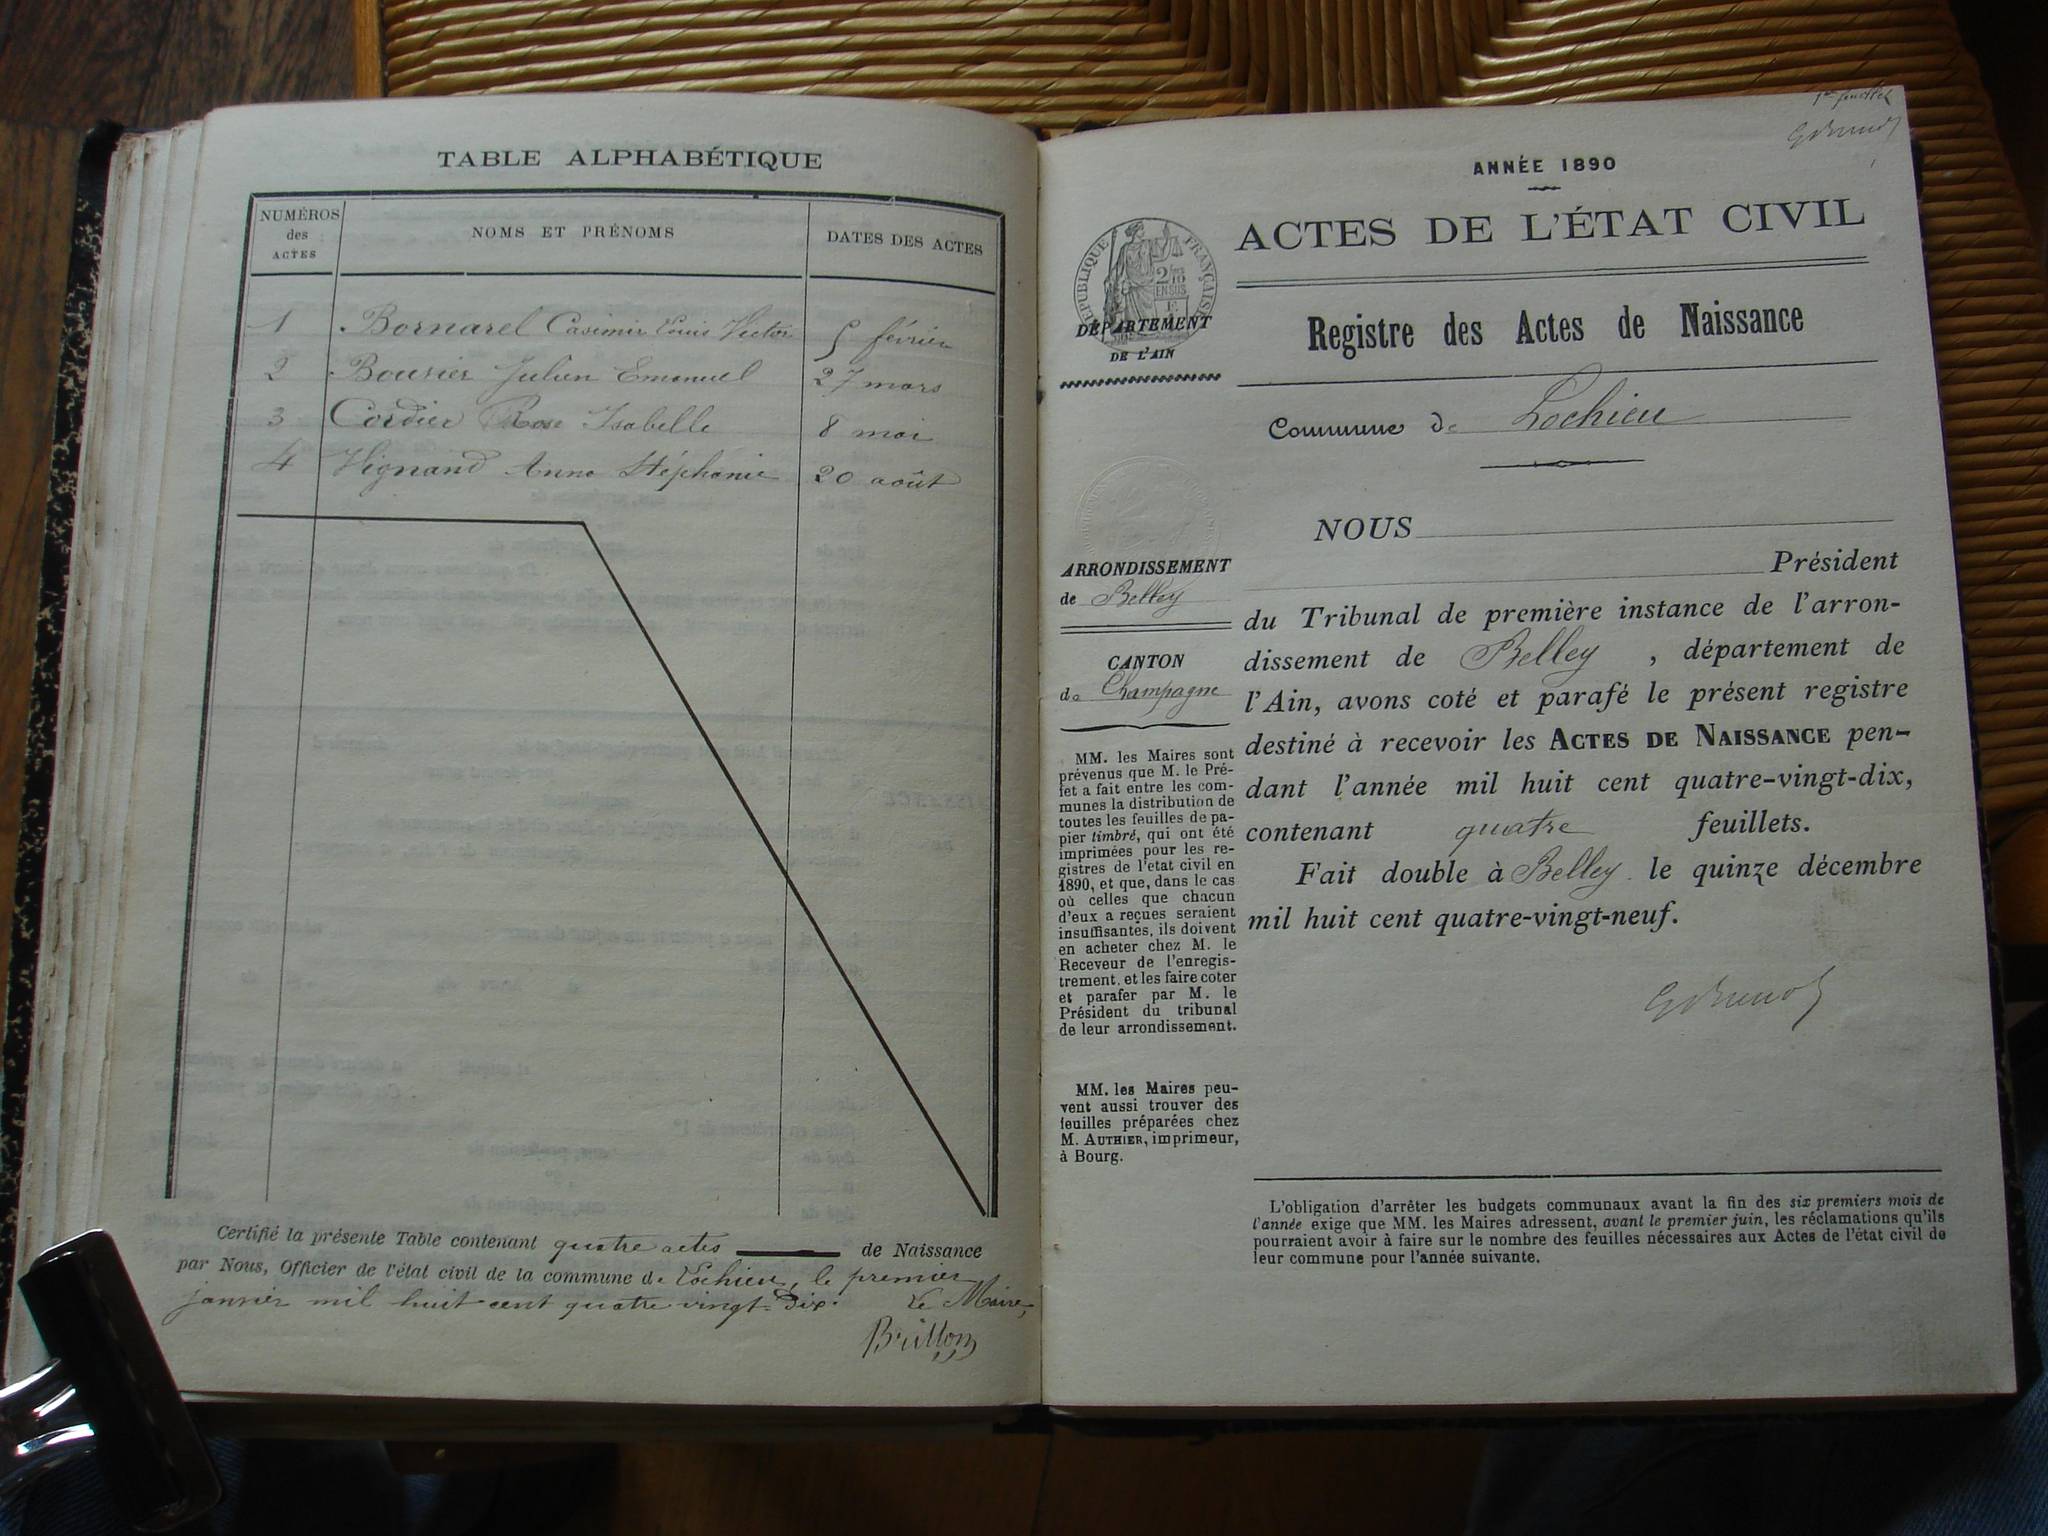 TABLE ALPHABÉTIQUE
NUMÉROS
des
ACTES
NOMS ET PRÉNOMS
DATES DES ACTES
1 Bornarel Casimir Louis Victor 5 février
2 Bouvier Julien Emanuel 27 mars
3 Cordier Rose Isabelle 8 mai
4 Vignand Anna Stéphanie 20 août
Certifié la présente Table contenant quatre actes de Naissance
par Nous, Officier de l'état civil de la commune de Lochieu, le premier
janvier mil huit cent quatre vingt-dix. Le Maire,
Brillon
1er feuillet
ANNÉE 1890
ACTES DE L'ÉTAT CIVIL
Registre des Actes de Naissance
Commune de Lochieu
RÉPUBLIQUE FRANÇAISE
2/10
EN SUS
DÉPARTEMENT
DE L'AIN
ARRONDISSEMENT
de Belley
CANTON
de Champagne
MM. les Maires sont
prévenus que M. le Pré-
fet a fait entre les com-
munes la distribution de
toutes les feuilles de pa-
pier timbré, qui ont été
imprimées pour les re-
gistres de l'état civil en
1890, et que, dans le cas
où celles que chacun
d'eux a reçues seraient
insuffisantes, ils doivent
en acheter chez M. le
Receveur de l'enregis-
trement. et les faire coter
et parafer par M. le
Président du tribunal
de leur arrondissement.
MM. les Maires peu-
vent aussi trouver des
feuilles préparées chez
M. AUTHIER, imprimeur,
à Bourg.
NOUS
Président
du Tribunal de première instance de l'arron-
dissement de Belley, département de
l'Ain, avons coté et parafé le présent registre
destiné à recevoir les ACTES DE NAISSANCE pen-
dant l'année mil huit cent quatre-vingt-dix,
contenant quatre feuillets.
Fait double à Belley le quinze décembre
mil huit cent quatre-vingt-neuf.
L'obligation d'arrêter les budgets communaux avant la fin des six premiers mois de
l'année exige que MM. les Maires adressent, avant le premier juin, les réclamations qu'ils
pourraient avoir à faire sur le nombre des feuilles nécessaires aux Actes de l'état civil de
leur commune pour l'année suivante.